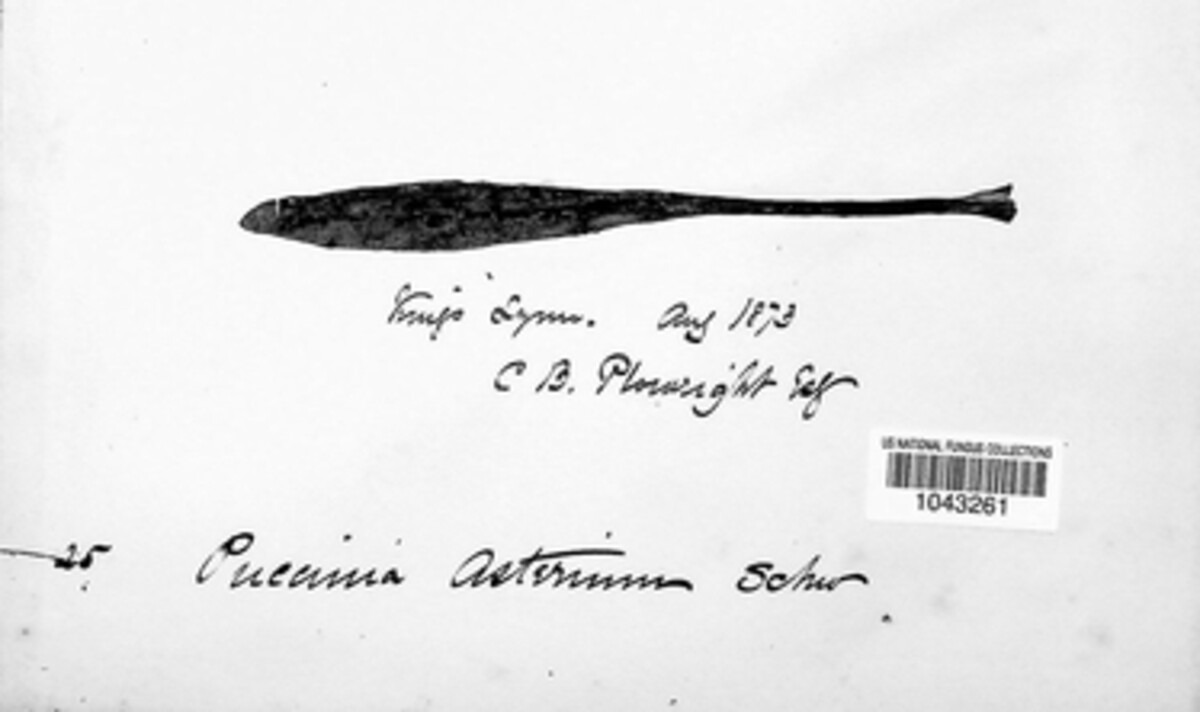 King's Lynn. Aug 1873
C B. Plowright Esq
US NATIONAL FUNGUS COLLECTIONS
1043261
25. Puccinia Asterium Schw